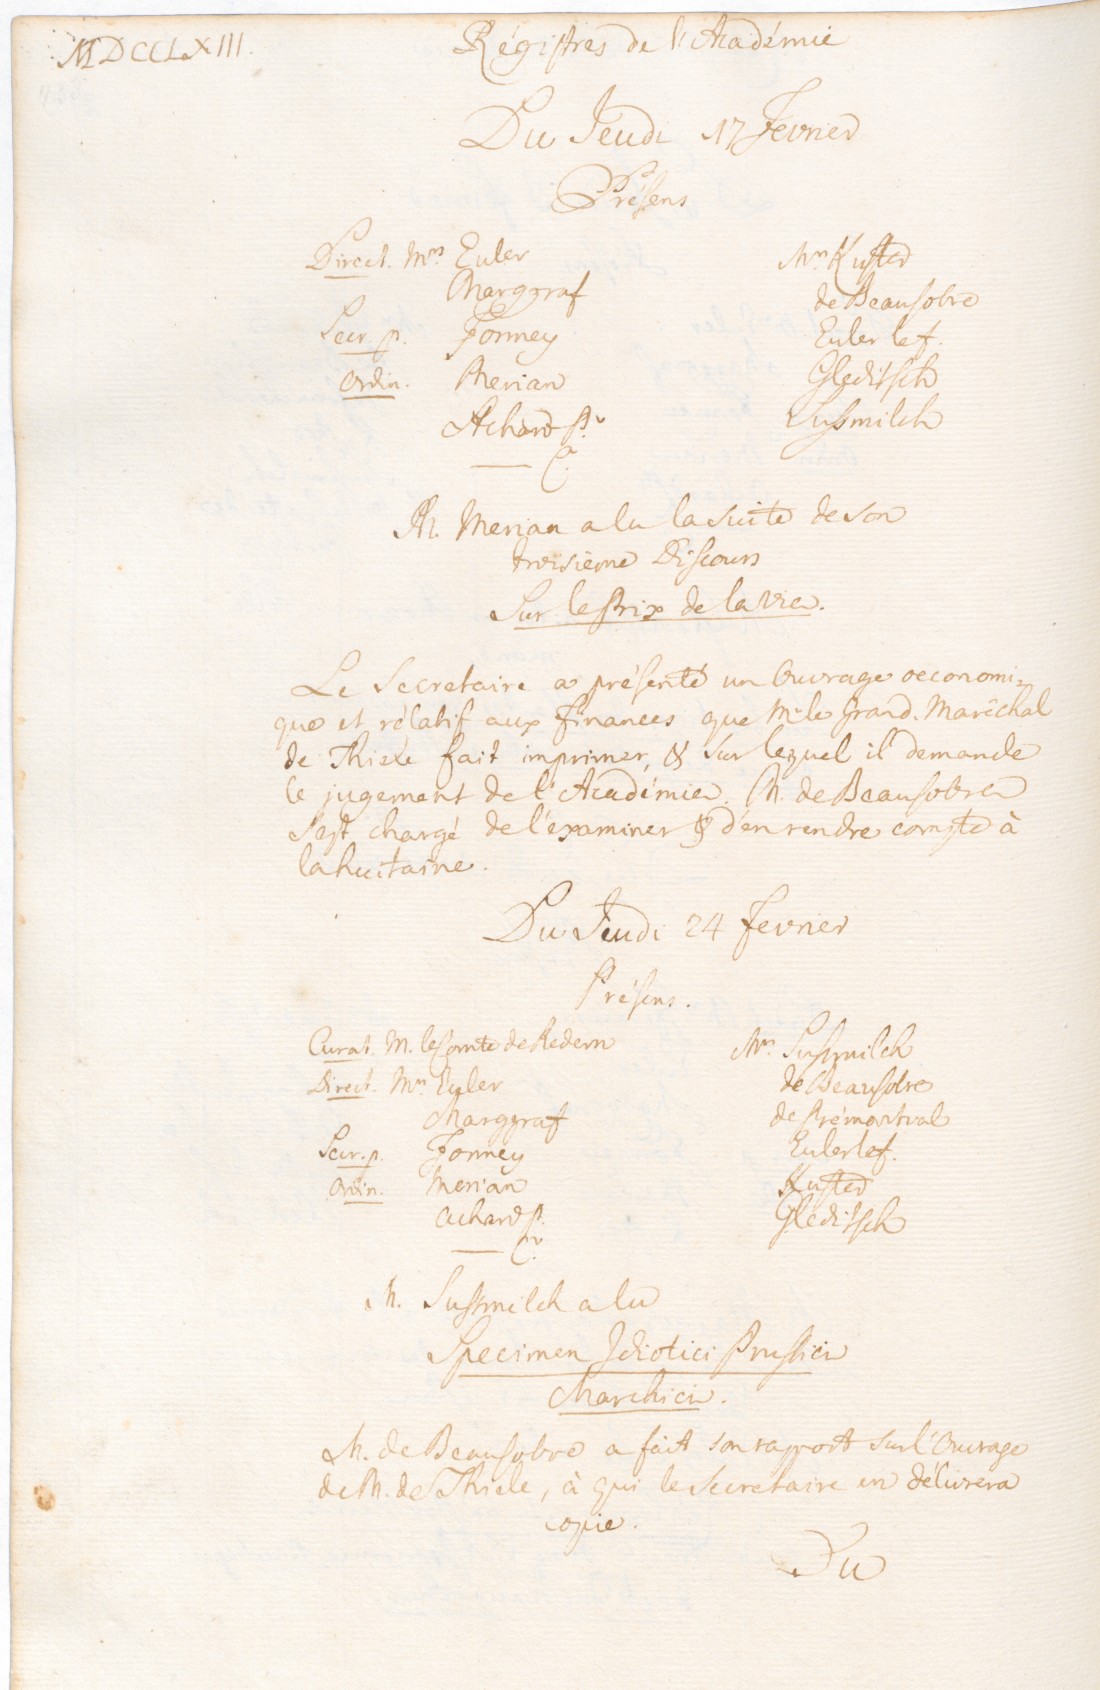 MDCCLXIII.
Régistres de l'Académie
Du Jeudi 17 Fevrier
Présens
Direct. Mrs Euler
Marggraf
Secr. p. Formey
Ordin. Merian
Achard p.
Mrs Kuster
de Beausobre
Euler le f.
Gleditsch
Sussmilch
M. Merian a lu la suite de son
troisième Discours
Sur le Prix de la Vie.
Le Secretaire a présenté un Ouvrage oeconomi-
que et rélatif aux finances que Mr le Grand. Maréchal
de Thiele fait imprimer, & sur lequel il demande
le jugement de l'Académie. M. de Beausobre
s'est chargé de l'examiner & d'en rendre compte à
la huitaine.
Du Jeudi 24 Fevrier
Présens.
Curat. M. le Comte de Redern
Direct. Mrs Euler
Marggraf
Secr. p. Formey
Ordin. Merian
Achard p.
Mrs Sussmilch
de Beausobre
de Prémontval
Euler le f.
Kuster
Gleditsch
M. Sussmilch a lu
Specimen Idiotici Prussici
Marchici.
M. de Beausobre a fait son rapport sur l'Ouvrage
de M. de Thiele, à qui le Secretaire en délivrera
copie.
Du